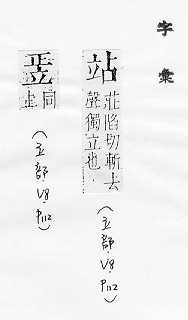 字彙
站
莊陷切斬去
聲獨立也.
(立部.V8.P112)
同
上
(立部.V8.P112)